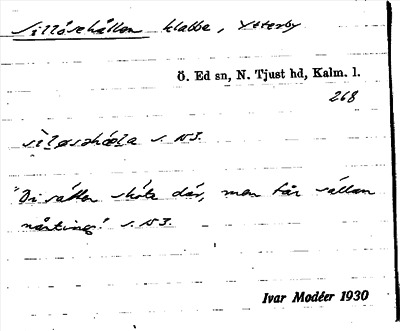 Sillöshällen klabbe, Ytterby
Ö. Ed sn, N. Tjust hd, Kalm. l.
268
s. 153.
"Di sätter skötə där, men får sällan
nårting". s. 153.
Ivar Modéer 1930